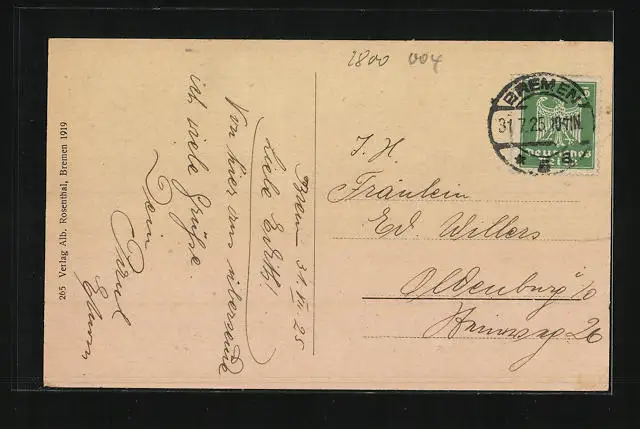 2800 004
BREMEN
31.7.25.10-11N
* 5 a.
Deutsches Reich
Bremen 31.VII.25
Liebe Edith!
Von hier aus übersende
ich viele Grüße.
Dein
Paul
265 Verlag Alb. Rosenthal, Bremen 1919
I. H.
Fräulein
Ed. Willers
Oldenburg i/O
26